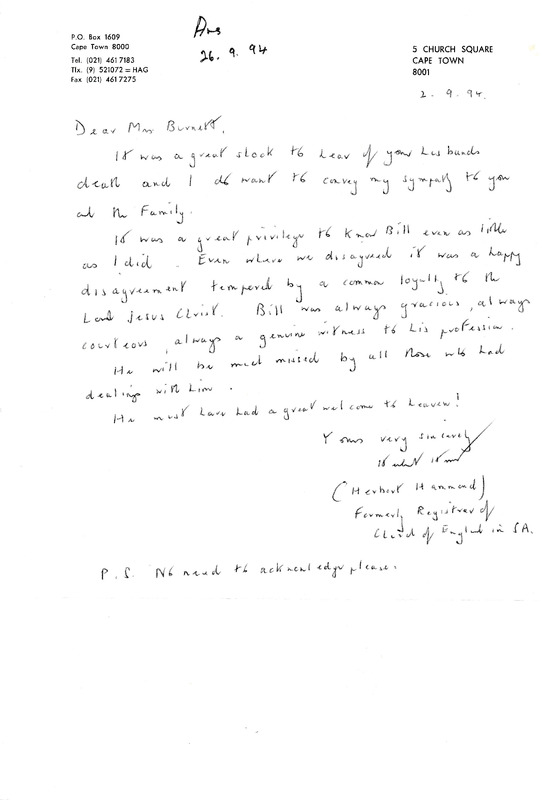 P.O. Box 1609
Cape Town 8000
Tel. (021) 461 7183
Tlx. (9) 521072 = HAG
Fax (021) 461 7275
Ans
26. 9. 94
5 CHURCH SQUARE
CAPE TOWN
8001
2. 9. 94.
Dear Mrs Burnett,
It was a great shock to hear of your husbands
death and I do want to convey my sympathy to you
and the Family.
It was a great privilege to know Bill even as little
as I did. Even where we disagreed it was a happy
disagreement tempered by a common loyalty to the
Lord Jesus Christ. Bill was always gracious, always
courteous, always a genuine witness to his profession.
He will be much missed by all those who had
dealings with him.
He must have had a great welcome to heaven!
Yours very sincerely
(Herbert Hammond)
Formerly Registrar of
Church of England in SA.
P.S. No need to acknowledge please.